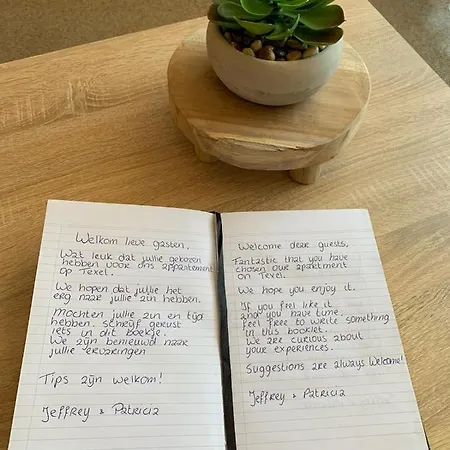 Welkom lieve gasten,
Wat leuk dat jullie gekozen
hebben voor ons appartement
op Texel.
We hopen dat jullie het
erg naar jullie zin hebben.
Mochten jullie zin en tijd
hebben, schrijf gerust
iets in dit boekje.
We zijn benieuwd naar
jullie ervaringen
Tips zijn welkom!
Jeffrey & Patricia
Welcome dear guests,
Fantastic that you have
chosen our apartment
on Texel.
We hope you enjoy it.
If you feel like it
and you have time,
feel free to write something
in this booklet.
We are curious about
your experiences.
Suggestions are always welcome!
Jeffrey & Patricia